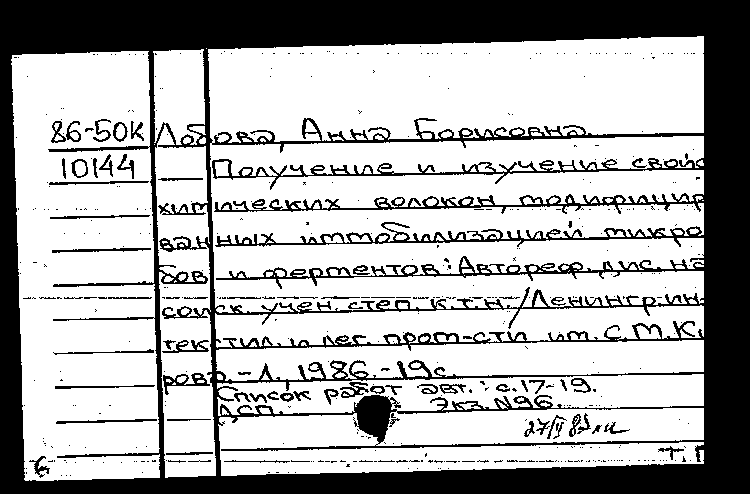 86-50К Лобова, Анна Борисовна.
10144 Получение и изучение свойс
химических волокон, модифицир
ванных иммобилизацией микро
бов и ферментов: Автореф. дис. на
соиск. учен. степ. к.т.н. / Ленингр. ин-
текстил. и лег. пром-сти им. С.М.Ки
рова. - Л., 1986. - 19с.
Список работ авт.: с.17-19.
ДСП. Экз. N96.
27/II 87
6 Т. П